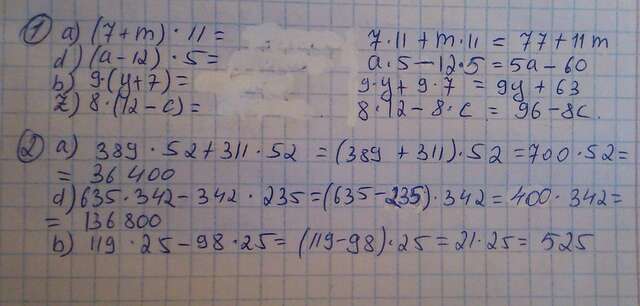 1 a) (7+m)·11 = 7·11+m·11 = 77+11m
d) (a-12)·5 = a·5-12·5 = 5a-60
b) 9·(y+7) = 9·y+9·7 = 9y+63
z) 8·(12-c) = 8·12-8·c = 96-8c.
2 a) 389·52+311·52 = (389+311)·52 = 700·52 =
= 36400
d) 635·342-342·235 = (635-235)·342 = 400·342 =
= 136800
b) 119·25-98·25 = (119-98)·25 = 21·25 = 525